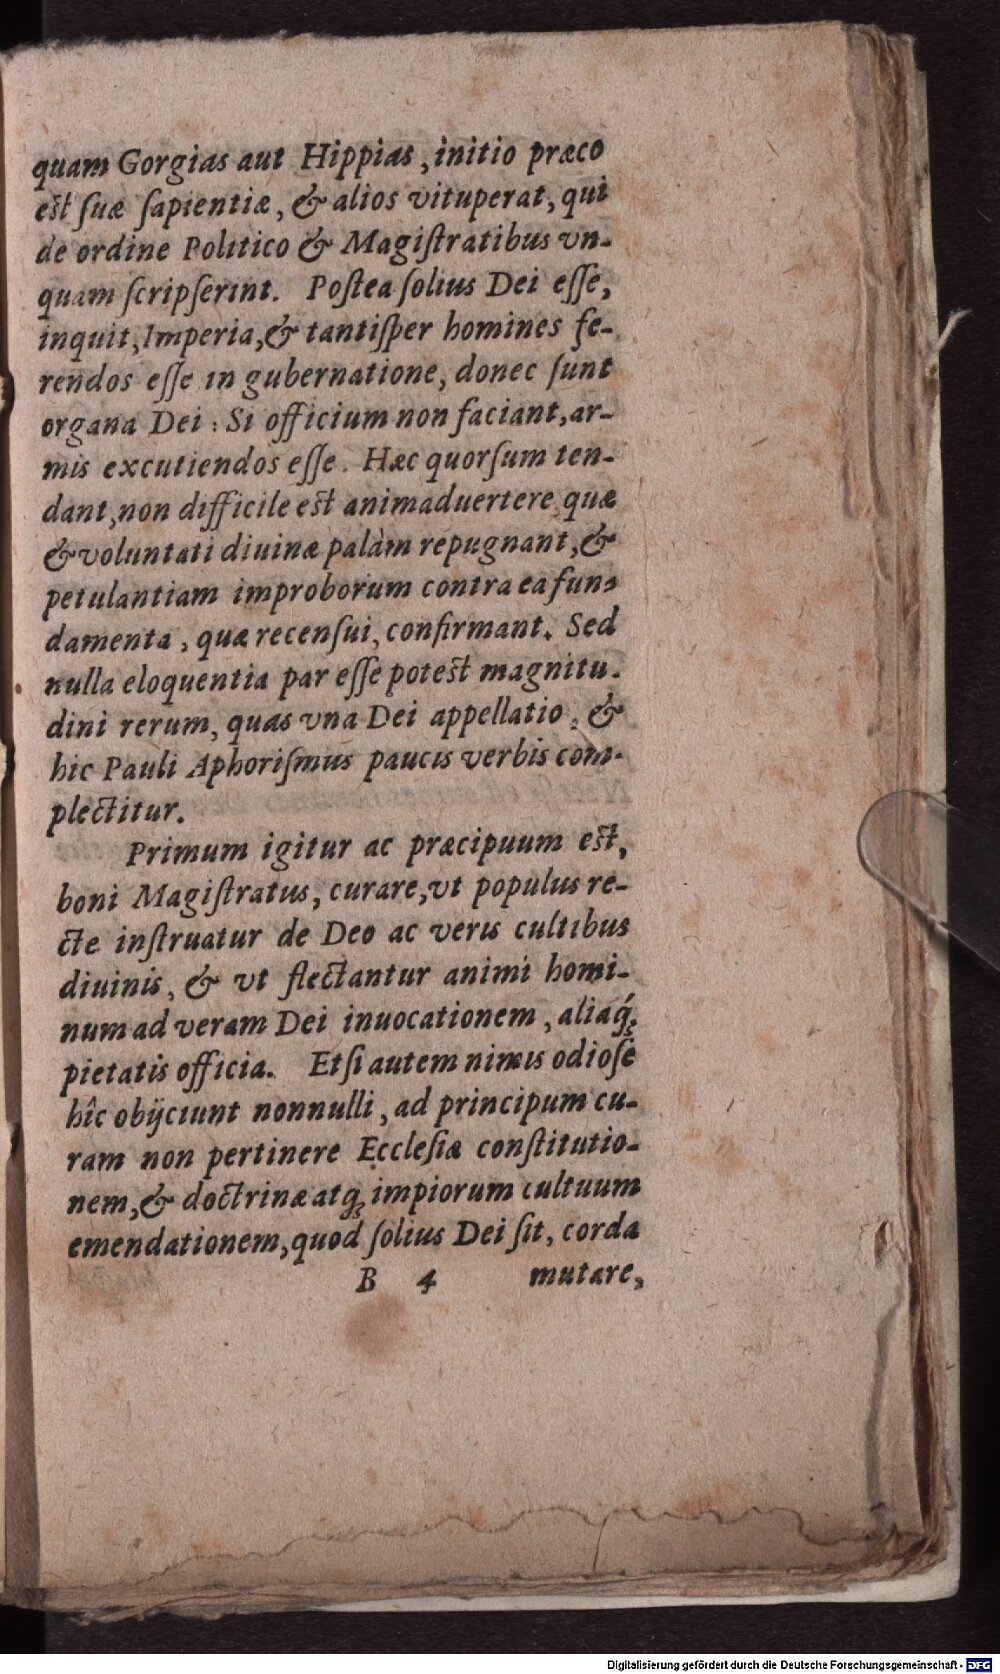 quam Gorgias aut Hippias, initio præco
est ſuæ ſapientiæ, & alios vituperat, qui
de ordine Politico & Magiſtratibus vn-
quam ſcripſerint. Poſtea ſolius Dei eſſe,
inquit, Imperia, & tantiſper homines fe-
rendos eſſe in gubernatione, donec ſunt
organa Dei: Si officium non faciant, ar-
mis excutiendos eſſe. Hæc quorſum ten-
dant, non difficile est animaduertere quæ
& voluntati diuinæ palàm repugnant, &
petulantiam improborum contra ea fun-
damenta, quæ recenſui, confirmant. Sed
nulla eloquentia par eſſe potest magnitu-
dini rerum, quas vna Dei appellatio, &
hic Pauli Aphoriſmus paucis verbis com-
plectitur.
Primum igitur ac præcipuum est,
boni Magiſtratus, curare, vt populus re-
cte inſtruatur de Deo ac veris cultibus
diuinis, & vt flectantur animi homi-
num ad veram Dei inuocationem, aliaq́;
pietatis officia. Etſi autem nimis odioſè
hîc obijciunt nonnulli, ad principum cu-
ram non pertinere Eccleſiæ conſtitutio-
nem, & doctrinæ atq; impiorum cultuum
emendationem, quod ſolius Dei ſit, corda
B 4 mutare,
Digitalisierung gefördert durch die Deutsche Forschungsgemeinschaft - DFG